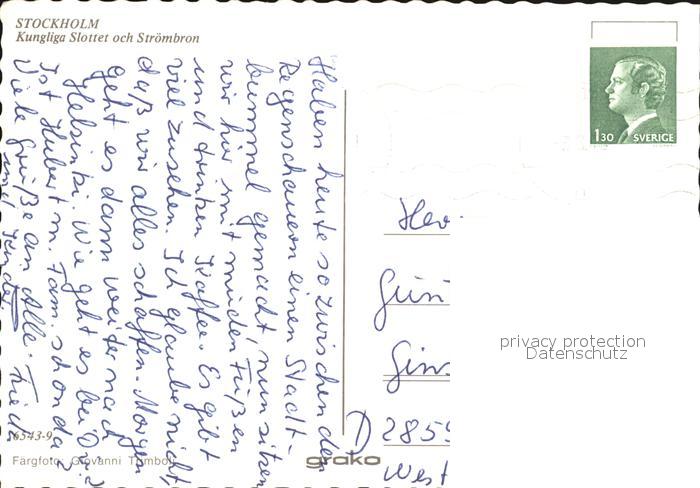 STOCKHOLM
Kungliga Slottet och Strömbron
1 30 SVERIGE
Haben heute so zwischen den
Regenschauern einen Stadt-
bummel gemacht, nun sitzen
wir hier mit müden Füßen
und trinken Kaffee. Es gibt
viel zusehen. Ich glaube nicht,
daß wir alles schaffen. Morgen
geht es dann weiter nach
Helsinki. Wie geht es bei Dir?
Ist Hubert m. Fam. schon da?
Viele Grüße an Alle.
Her
Gün
D 285
West
6543-9
Färgfoto: Giovanni Trimboli
grako
privacy protection
Datenschutz